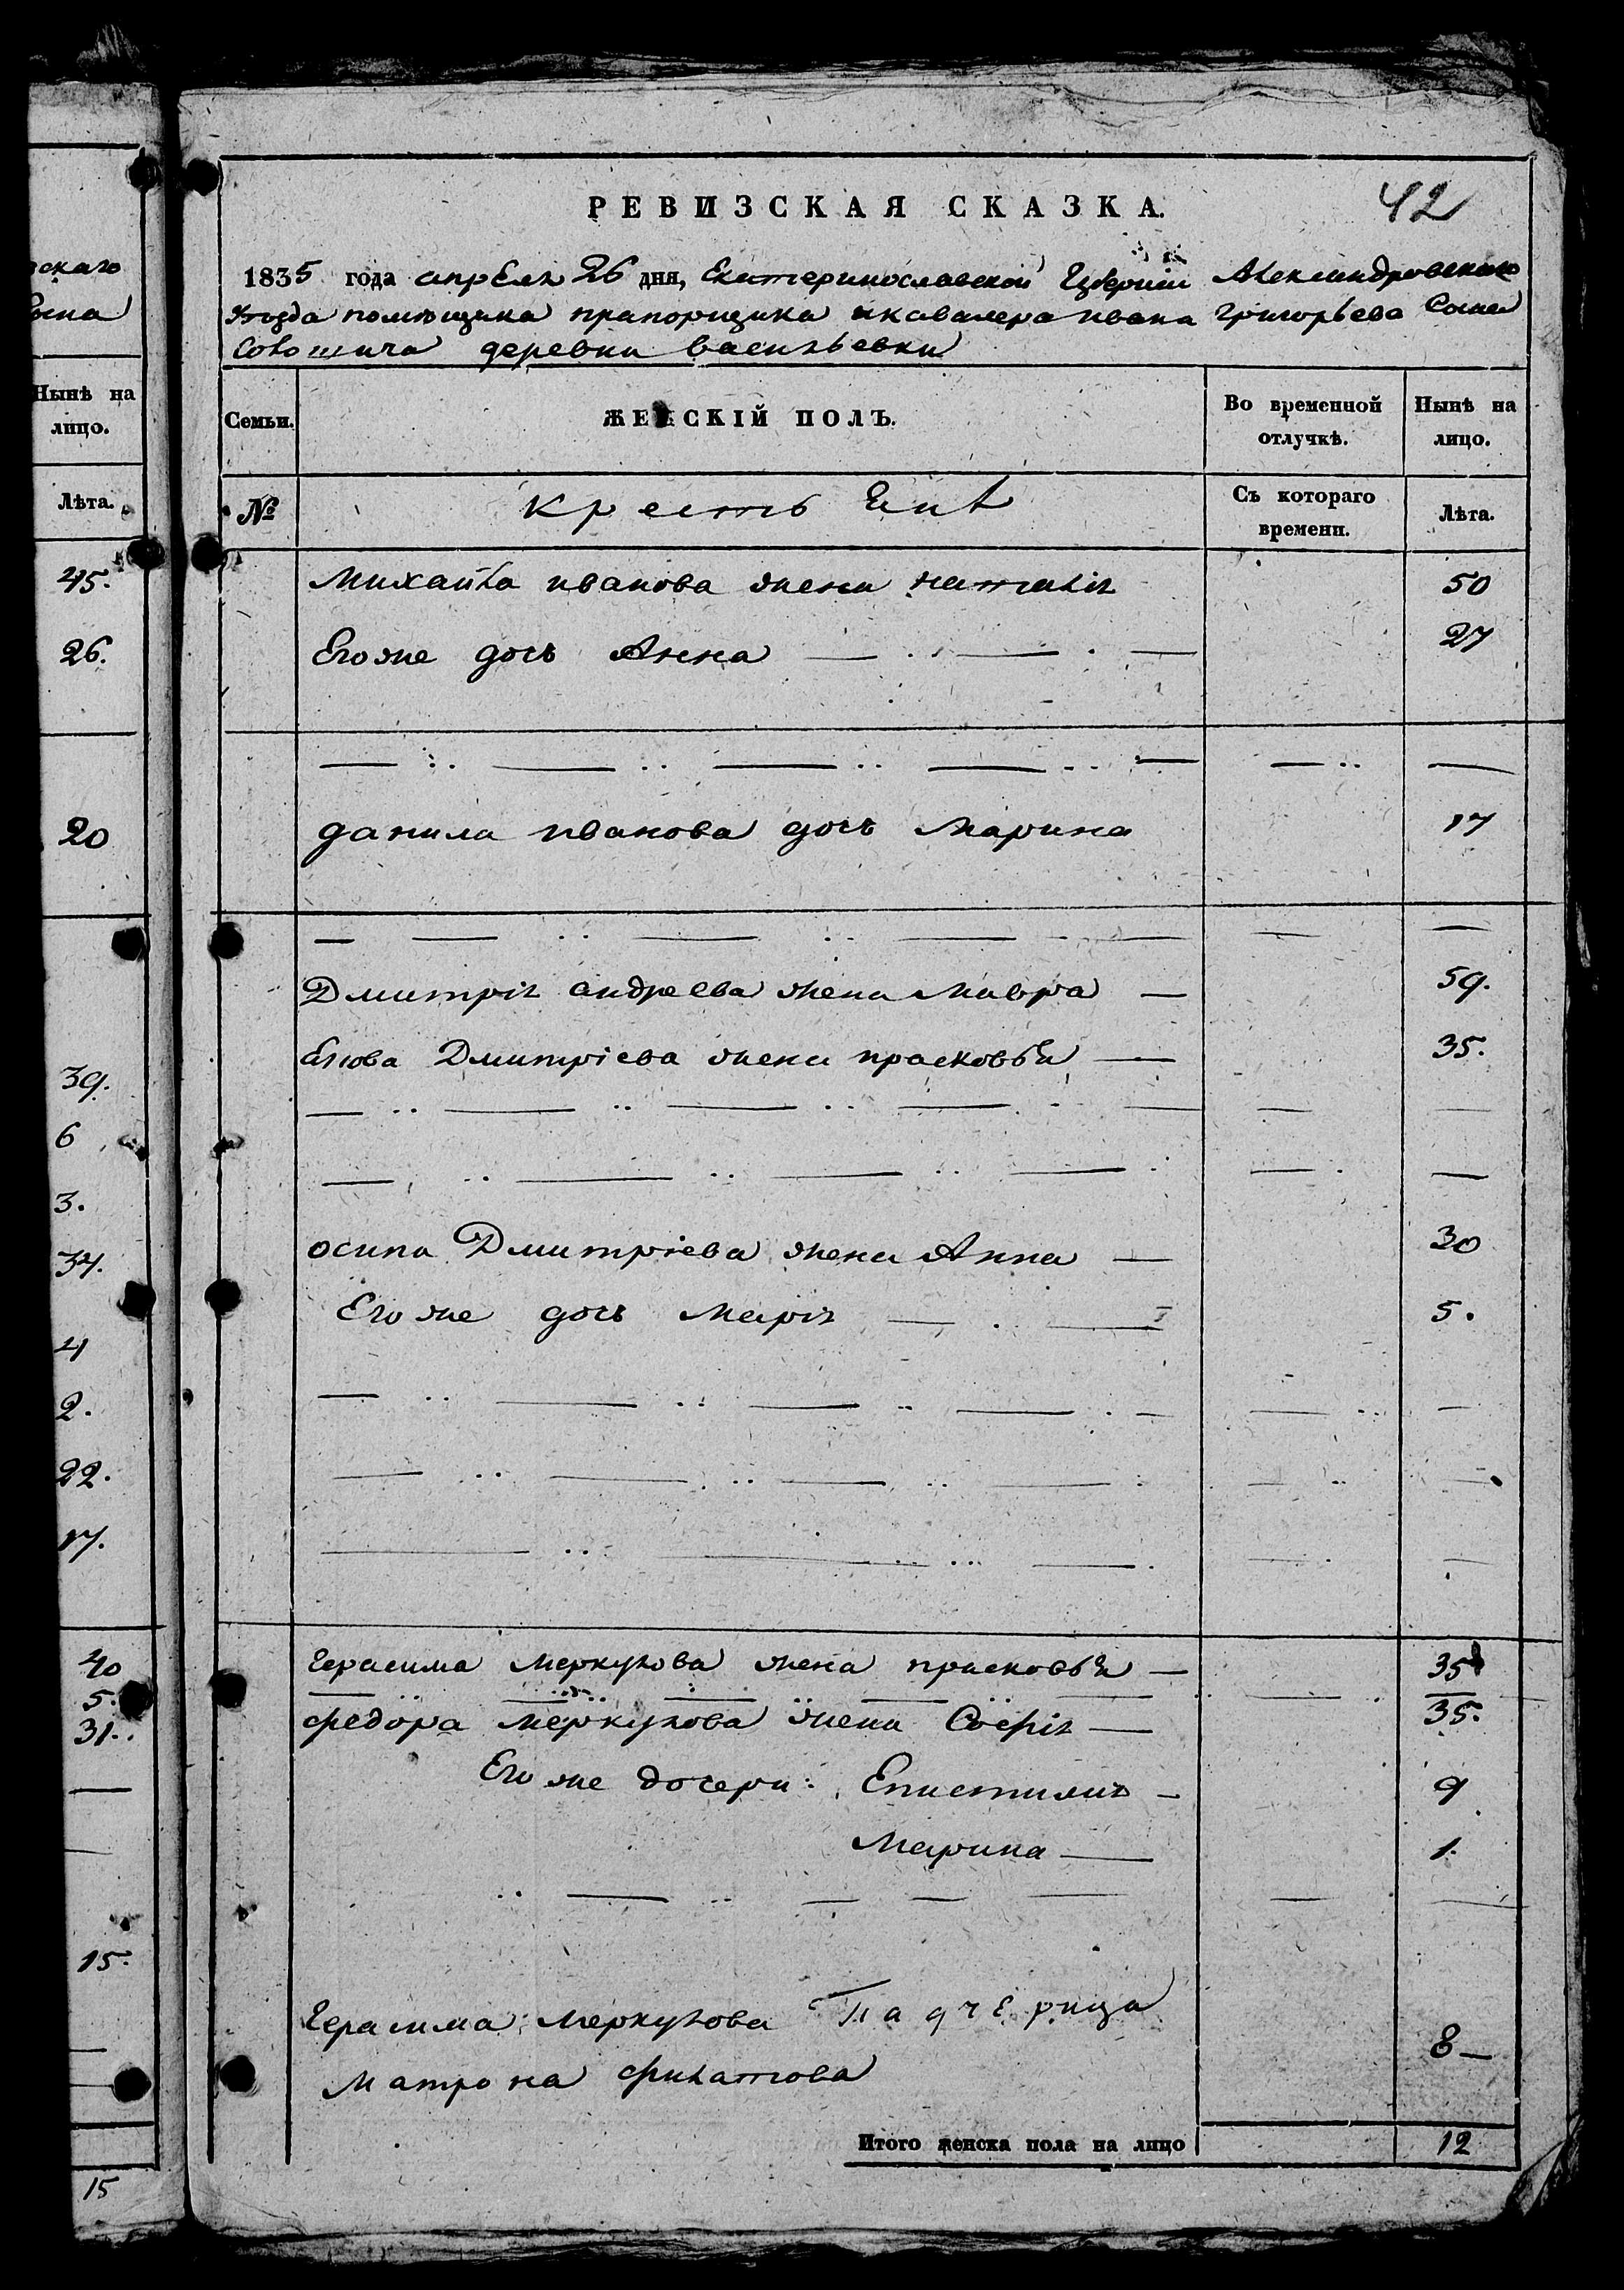 скаго
Нынѣ на
лицо.
Лѣта.
45.
26.
20
39.
6
3.
34.
4
2.
22.
17.
40
5.
31.
15.
15
РЕВИЗСКАЯ СКАЗКА.
42
1835 года апреля 26 дня, Екатеринославской Губерніи Александровскаго
Уезда помещика прапорщика и кавалера ивана григорьева Сына
деревни васильевки
Семьи.
ЖЕНСКІЙ ПОЛЪ.
Во временной отлучкѣ.
Нынѣ на лицо.
№
крестьяне
Съ котораго времени.
Лѣта.
Михайла иванова жена наталія 50
Егоже дочь Анна 27
данила иванова дочь Марина 17
Дмитрія андреева жена Мавра 59.
Дмитріева жена прасковья 35.
осипа Дмитріева жена Анна 30
Егоже дочь Марія 5.
Герасима Меркулова жена прасковья 35
федора меркулова жена Софія 35.
Егоже дочери: Епистимия 9
Марина 1.
Герасима Меркулова Падчерица
Матрона филатова 8
Итого женска пола на лицо 12